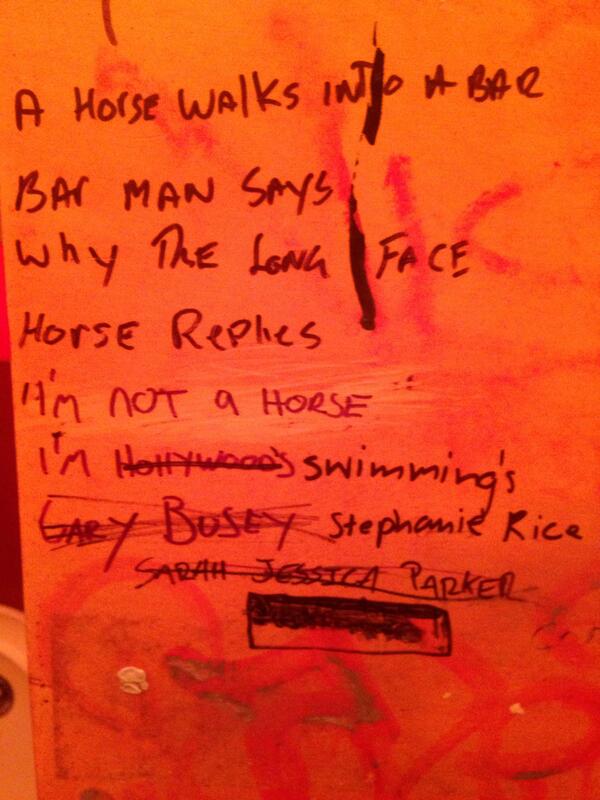 A HORSE WALKS INTO A BAR
BAR MAN SAYS
Why THE LONG FACE
HORSE Replies
"I'M NOT a HORSE
I'M HOllYWOOD'S swimming's
GARY BUSEY Stephanie Rice
SARAH JESSICA PARKER